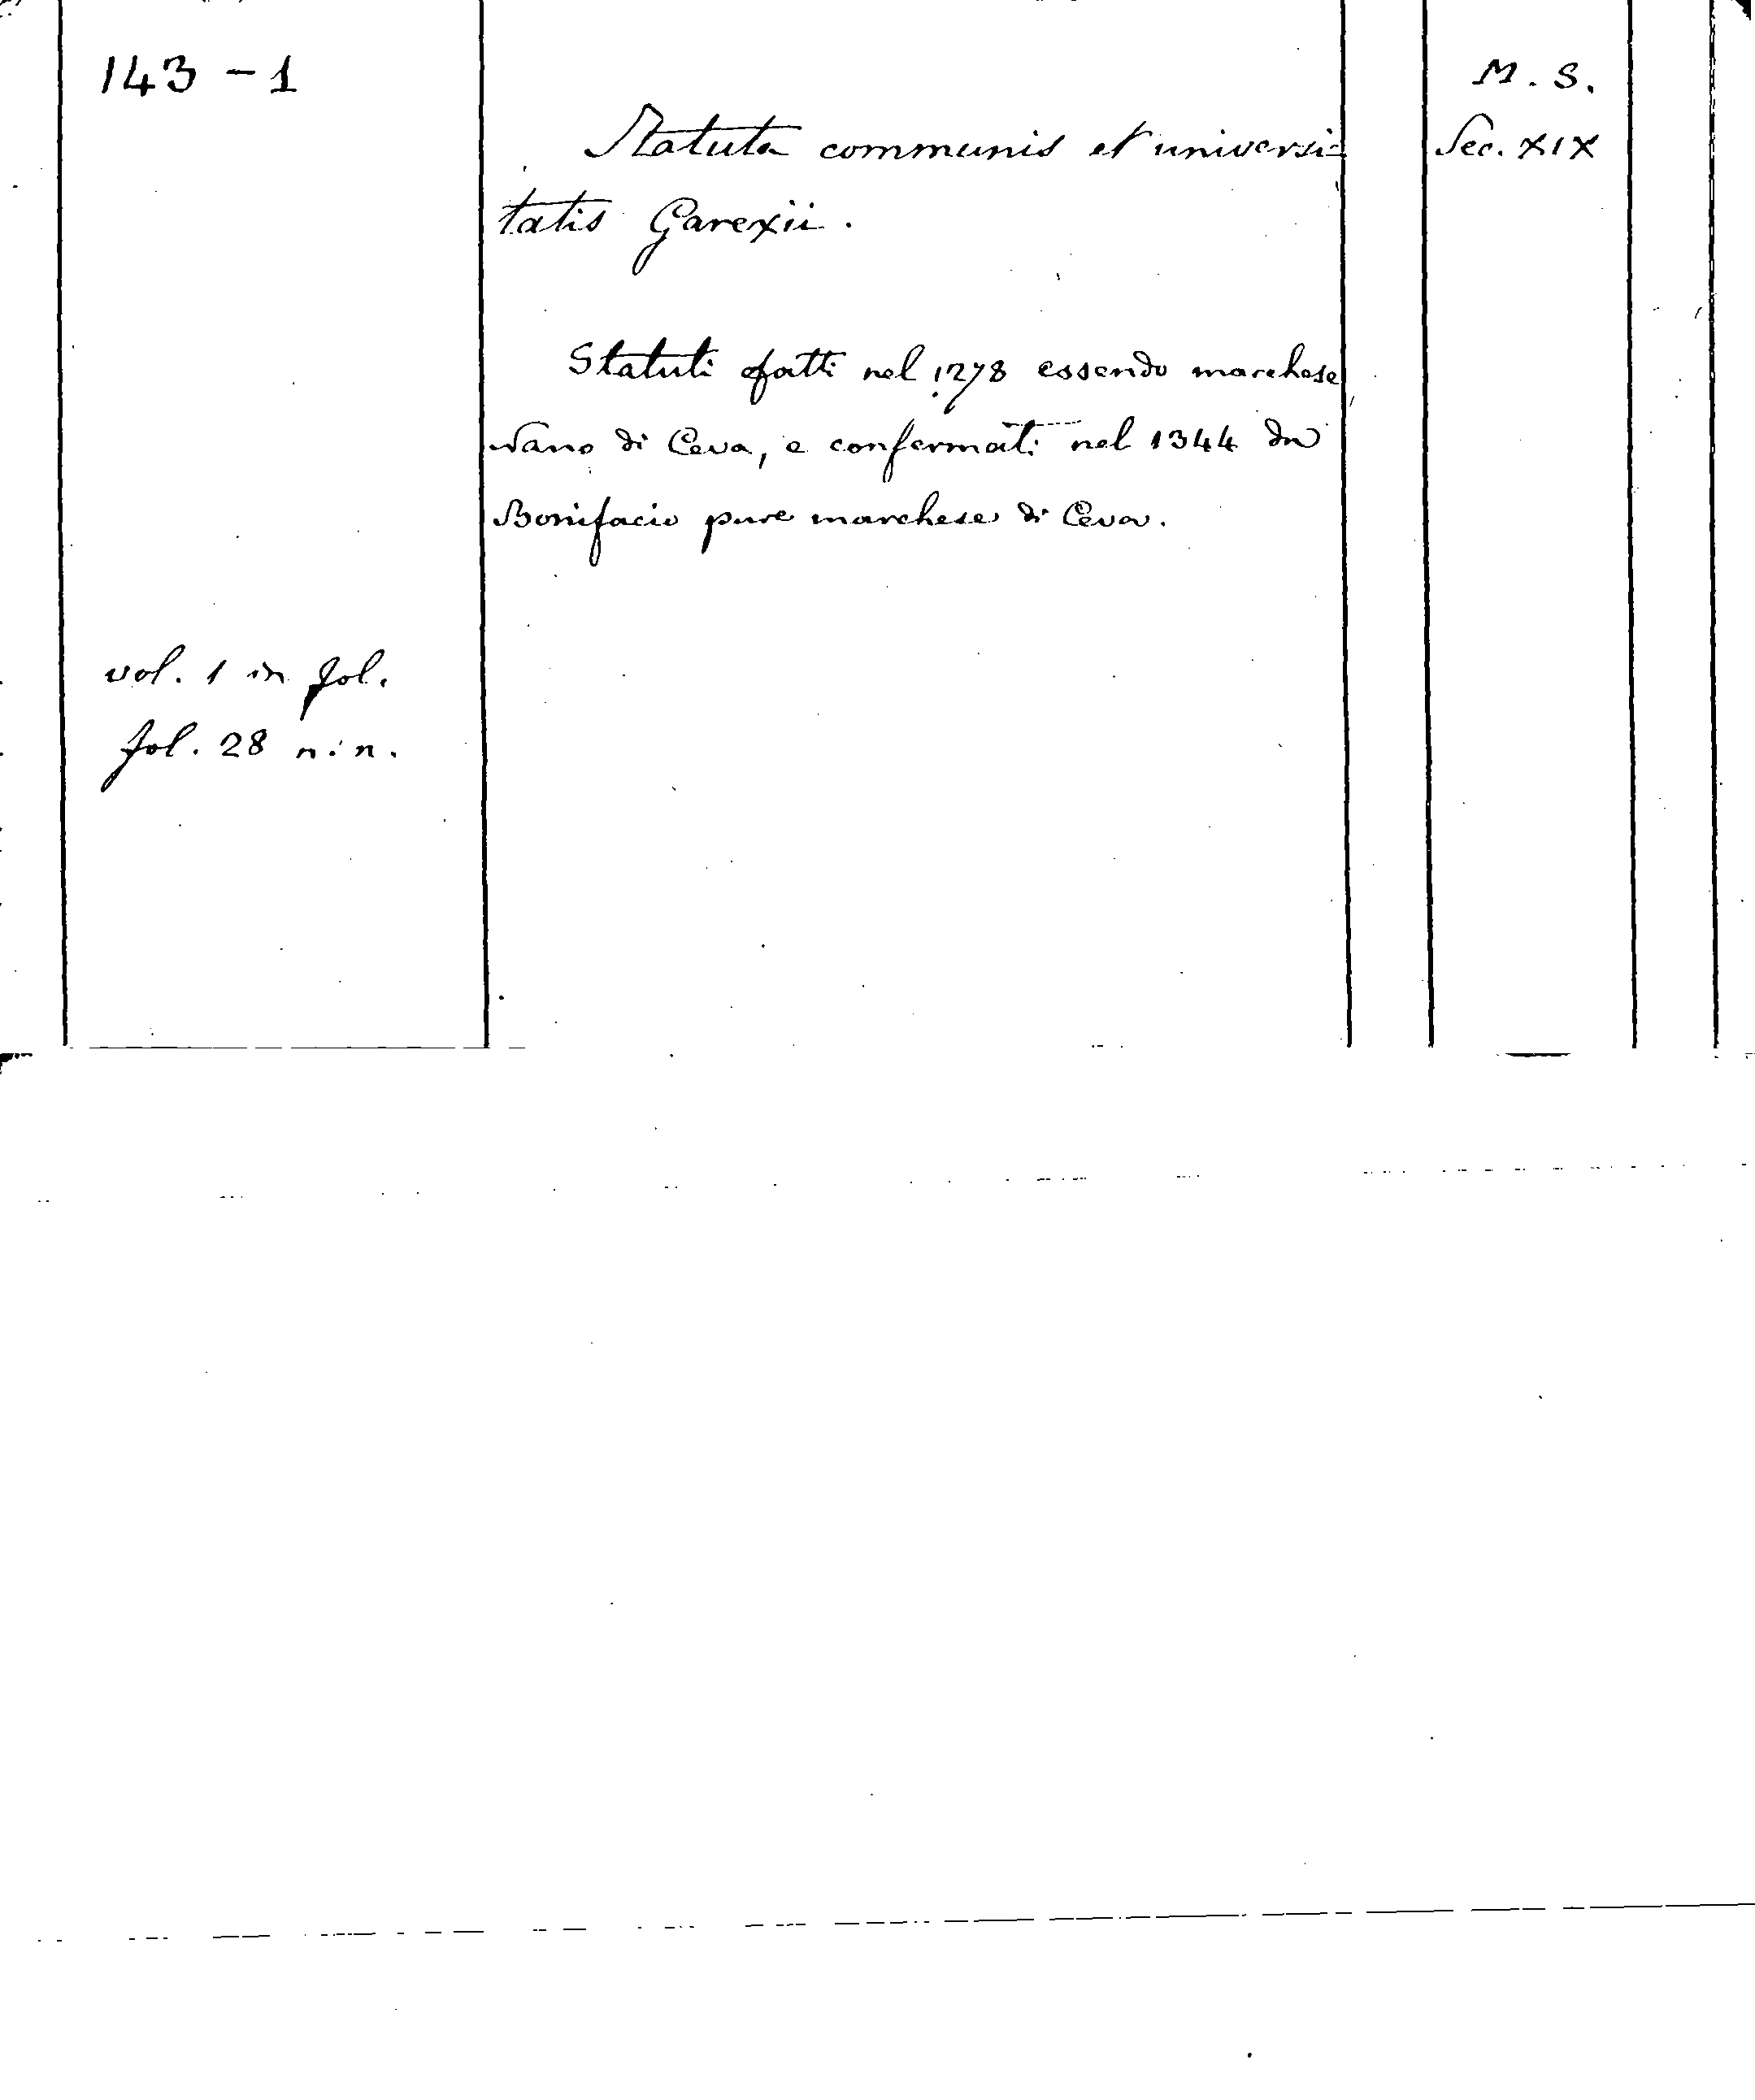 143 - 1
M. S.
Statuta communis et universi=
Sec. XIX
tatis Garexii.
Statuti fatti nel 1278 essendo marchese
Nano di Ceva, e confermati nel 1344 da
Bonifacio pure marchese di Ceva.
vol. 1 in fol.
fol. 28 n. n.